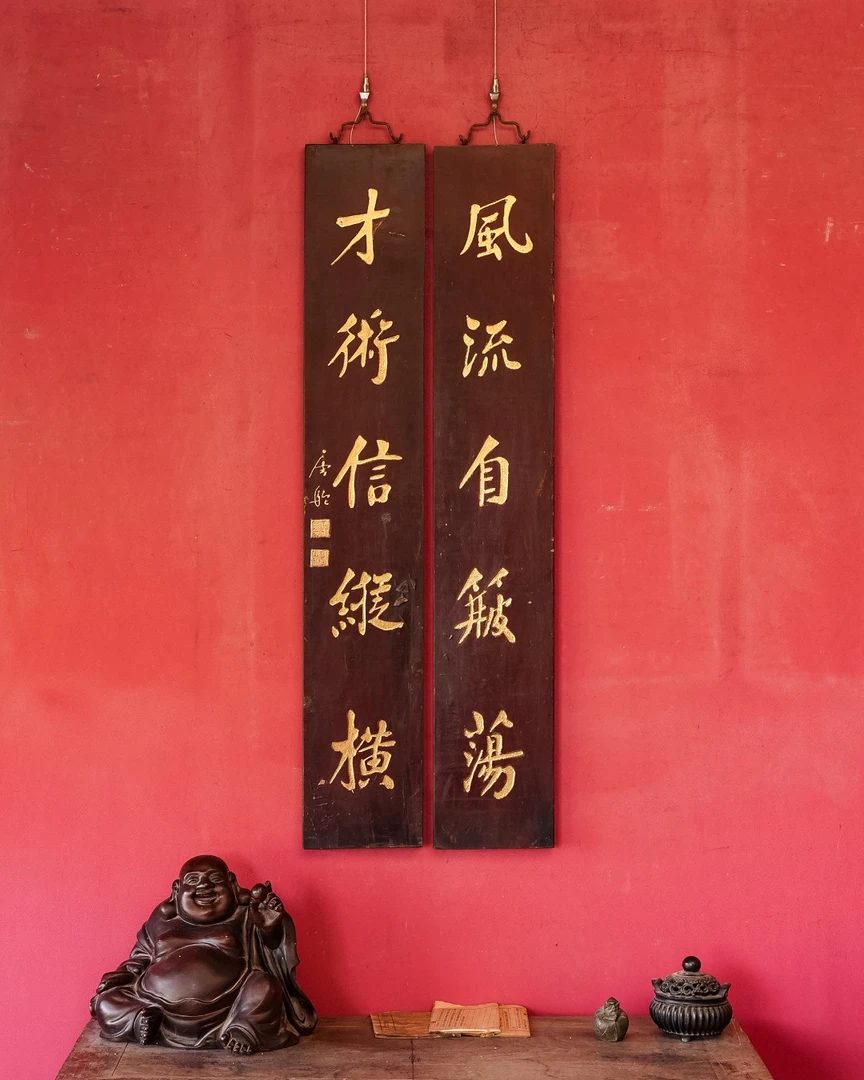 風流自簸蕩
才術信縱橫